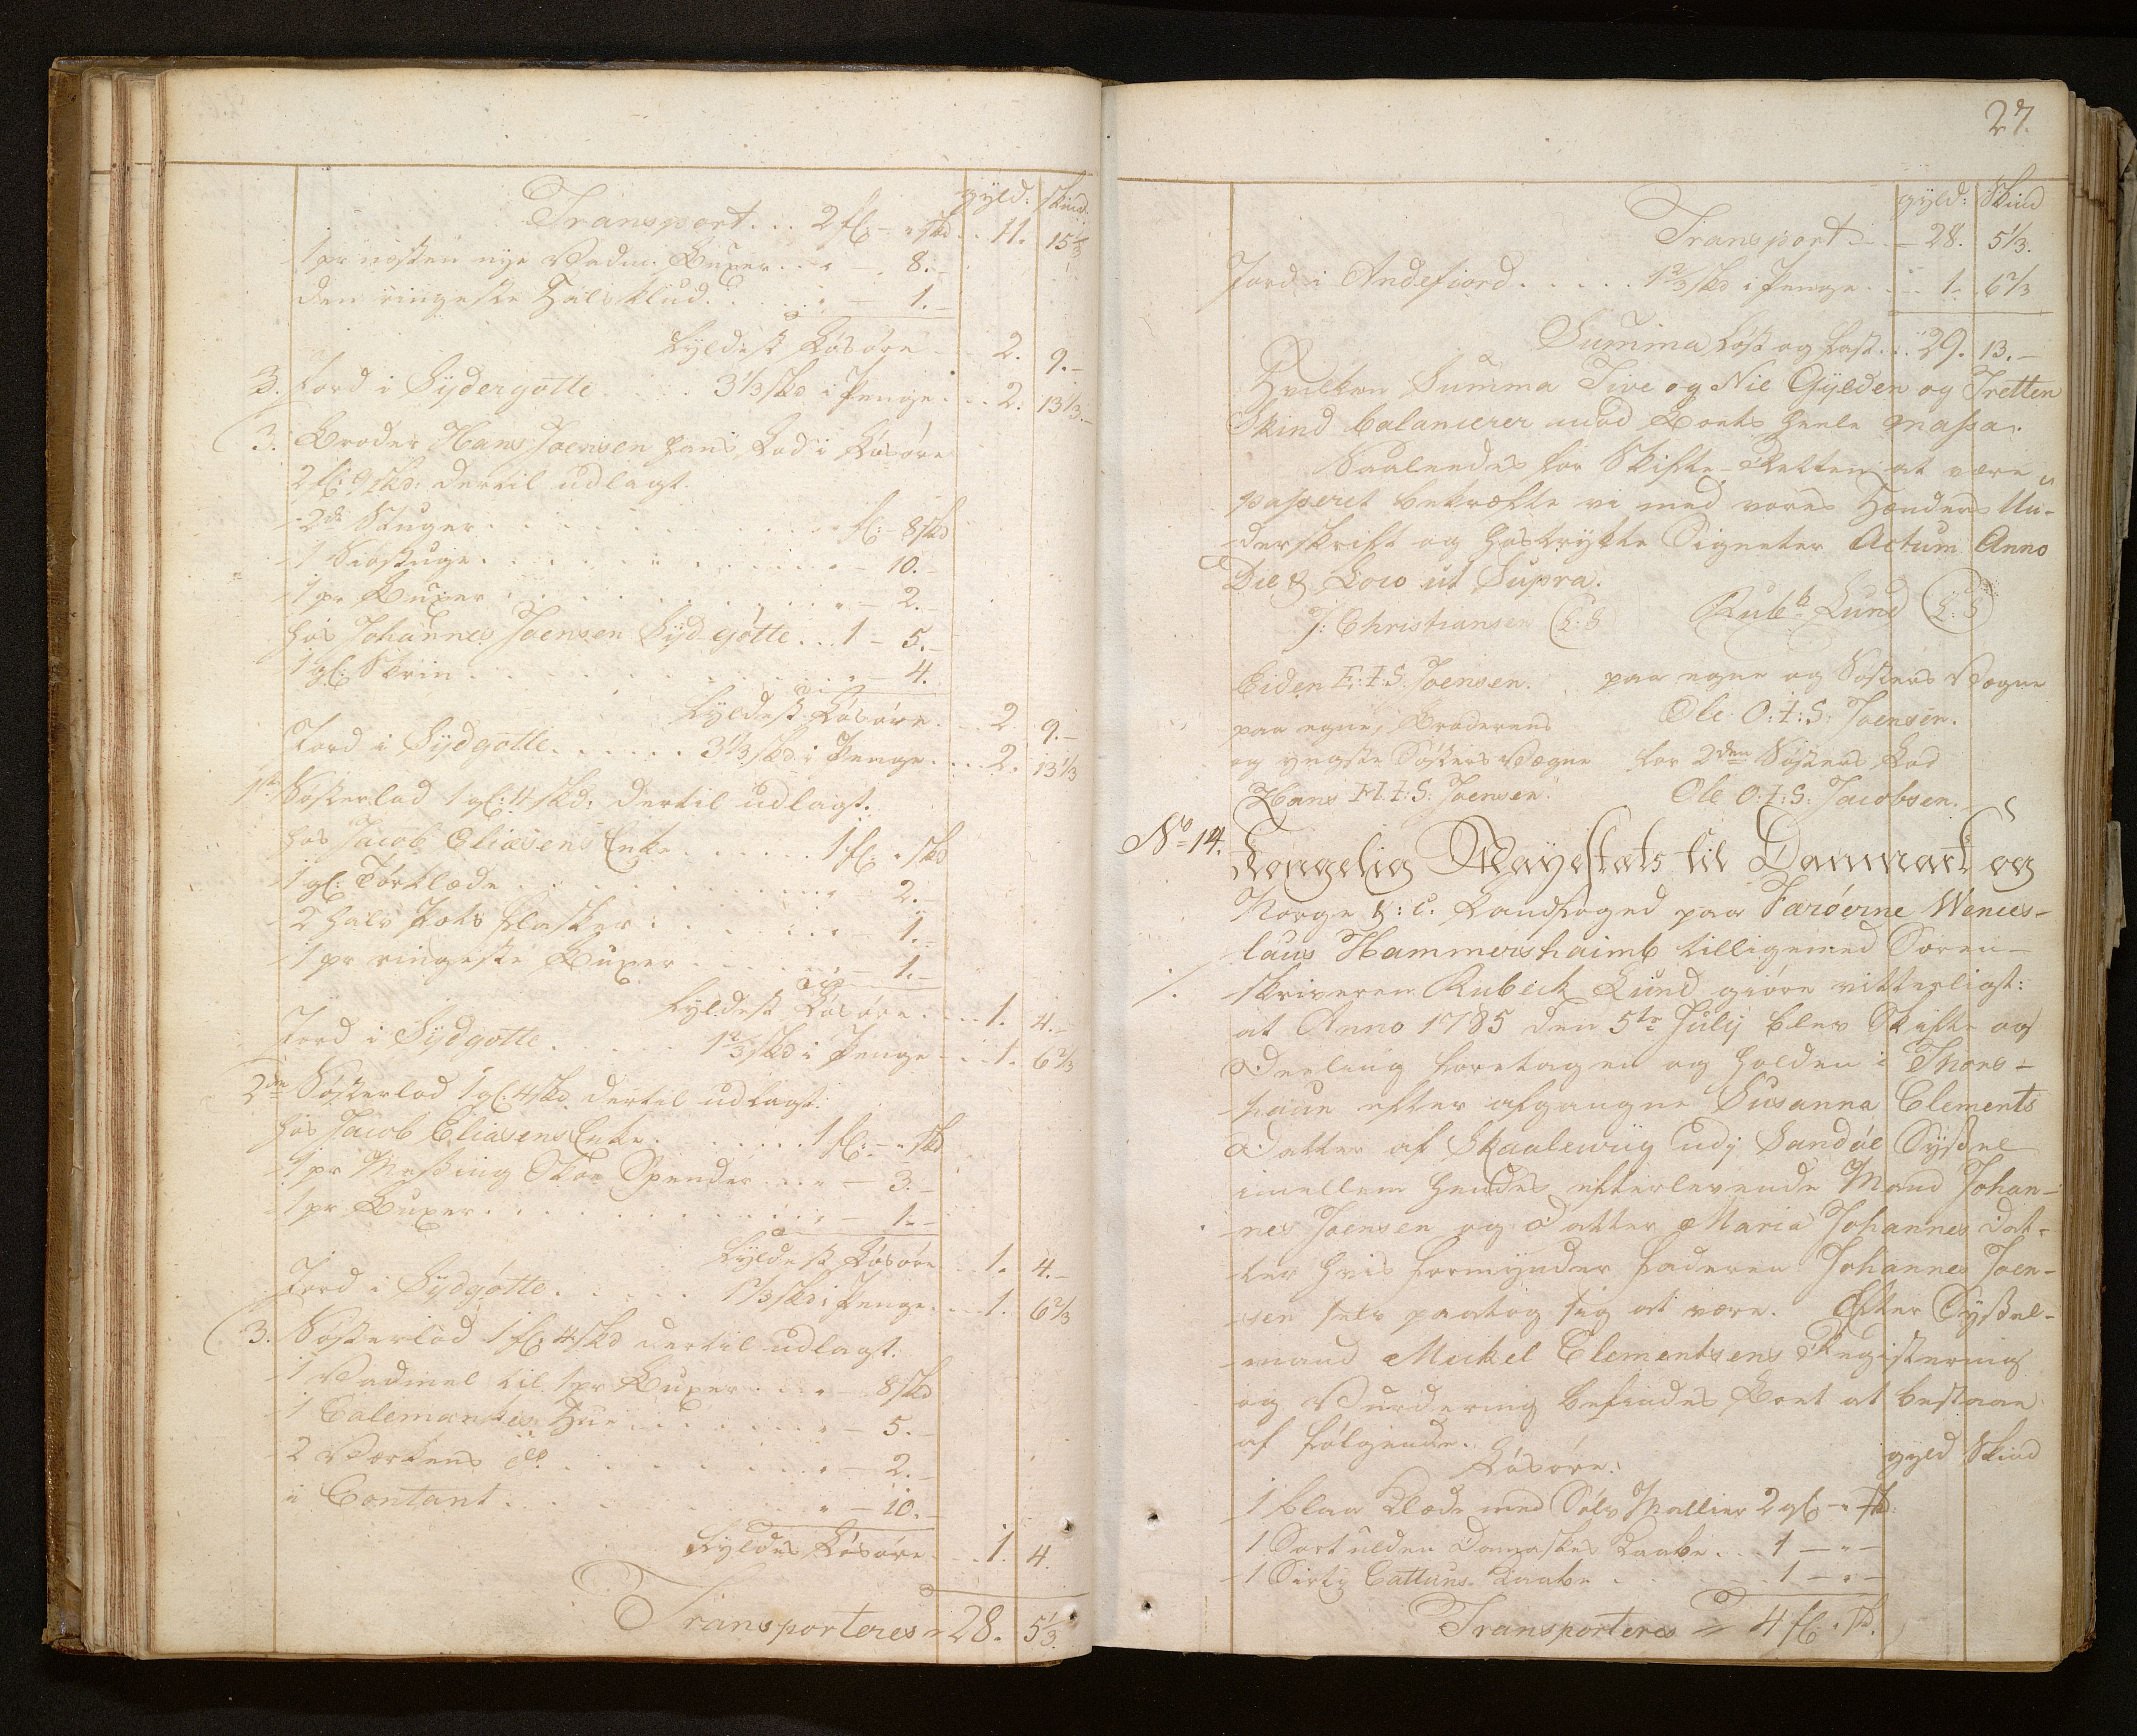 gyld: Skind
Transport... 2 fl: - " skd.. 11. 15 1/3
1 pr næsten nye Vadm. Buxer... " - 8. -
den ringeste Halsklud. . . . " - 1. -
fyldest Løsøre - - 2. 9. -
3. Jord i Sydergøtte . . . . 3 1/3 skd i Penge . . . 2. 13 1/3. -
3. Broder Hans Joensen hans Lod i Løsøre
2 fl: 9 skd: dertil udlagt.
2de Stuger . . . . . . . " fl: - 8 skd
1 Siøstuge . . . . . . . " - 10. -
1 pr Buxer . . . . . . . " - 2. -
hos Johannes Joensen Syd-gøtte . . 1 - 5. -
1 gl: Skrin . . . . . . . " - 4.
fyldest Løsøre. - 2 9. -
Jord i Sydgøtte . . . . . 3 1/3 skd: i Penge . . . 2. 13 1/3
1ste Søsterlod 1 gl: 4 skd: dertil udlagt.
hos Jacob Eliasens Enke . . . . . 1 fl: " skd
1 gl: Tørklæde . . . . . . . " 2. -
2 halv Pots flasker . . . . . " - 1. -
1 pr ringeste Buxer . . . . . " - 1. -
fyldest Løsøre . . . 1. 4. -
Jord i Sydgøtte . . . . . 1 2/3 skd i Penge - . . 1. 6 2/3
2den Søsterlod 1 gl: 4 skd dertil udlagt.
hos Jacob Eliasens Enke . . . . . 1 fl: - " skd
1 pr Messing Skoe Spender . . . " - 3. -
1 pr Buxer . . . . . . . " - 1. -
fyldest Løsøre . . 1. 4. -
Jord i Sydgøtte . . . . . 1 2/3 skd i Penge . . . 1. 6 2/3
3. Søsterlod 1 fl: 4 skd dertil udlagt.
1 Vadmel til 1 pr Buxer . . . " - 8 skd
1 Calemankes Hue . . . . . " - 5. -
2 Værkens do . . . . . . " - 2. -
i Contant . . . . . . . " - 10. -
fyldes Løsøre - . . 1. 4.
Transporteres " 28. 5 1/3.
27.
gyld: Skind
Transport - - 28. 5 1/3.
Jord i Andefiord . . . . . 1 2/3 skd i Penge . . . 1. 6 2/3
Summa Løst og fast . . . 29. 13. -
Hvilken Summa Tive og Nie Gylden og Tretten
Skind balancerer mod Boets heele Massa.
Saaleedes for Skifte-Retten at være
passeret bekræfte vi med vores Hænders Un-
derskrift og hostrykte Signeter Actum Anno
Die & Loco ut Supra.
J: Christiansen (L:S) Rubk Lund (L:S)
Eiden E:I:S. Joensen. paa egne og Søsters Vægne
paa egne, Broderens Ole O:I:S: Joensen.
og yngste Søsters Vægne for 2den Søsters Lod
Hans H:I:S: Joensen. Ole O:I:S: Jacobsen.
No 14. Kongelig Mayestæts til Danmark og
Norge &: c. Landfoged paa Færøerne Wences-
laus Hammershaimb tilligemed Soren-
skriveren Rubeck Lund giøre vitterligt:
at Anno 1785 den 5te July blev Skifte og
Deeling foretagen og holden i Thors-
haun efter afgangne Susanna Clements
Datter af Skaalewiig udj Sandøe Syssel
imellem hendes efterlevende Mand Johan-
nes Joensen og datter Maria Johannes dat-
ter hvis formynder faderen Johannes Joen-
sen selv paatog sig at være. Efter Syssel-
mand Mickel Clementsens Registering
og Vurdering befindes Boet at bestaae
af følgende.
Løsøre: gyld Skind
1 blaa Klæde med Sølv Mallier 2 gl: - " sk:
1 Sort ulden Damaskes Kaabe . . . 1 - " -
1 Sirtz Cattuns Kaabe . . . . 1 - " -
Transporteres 4 fl: " sk.